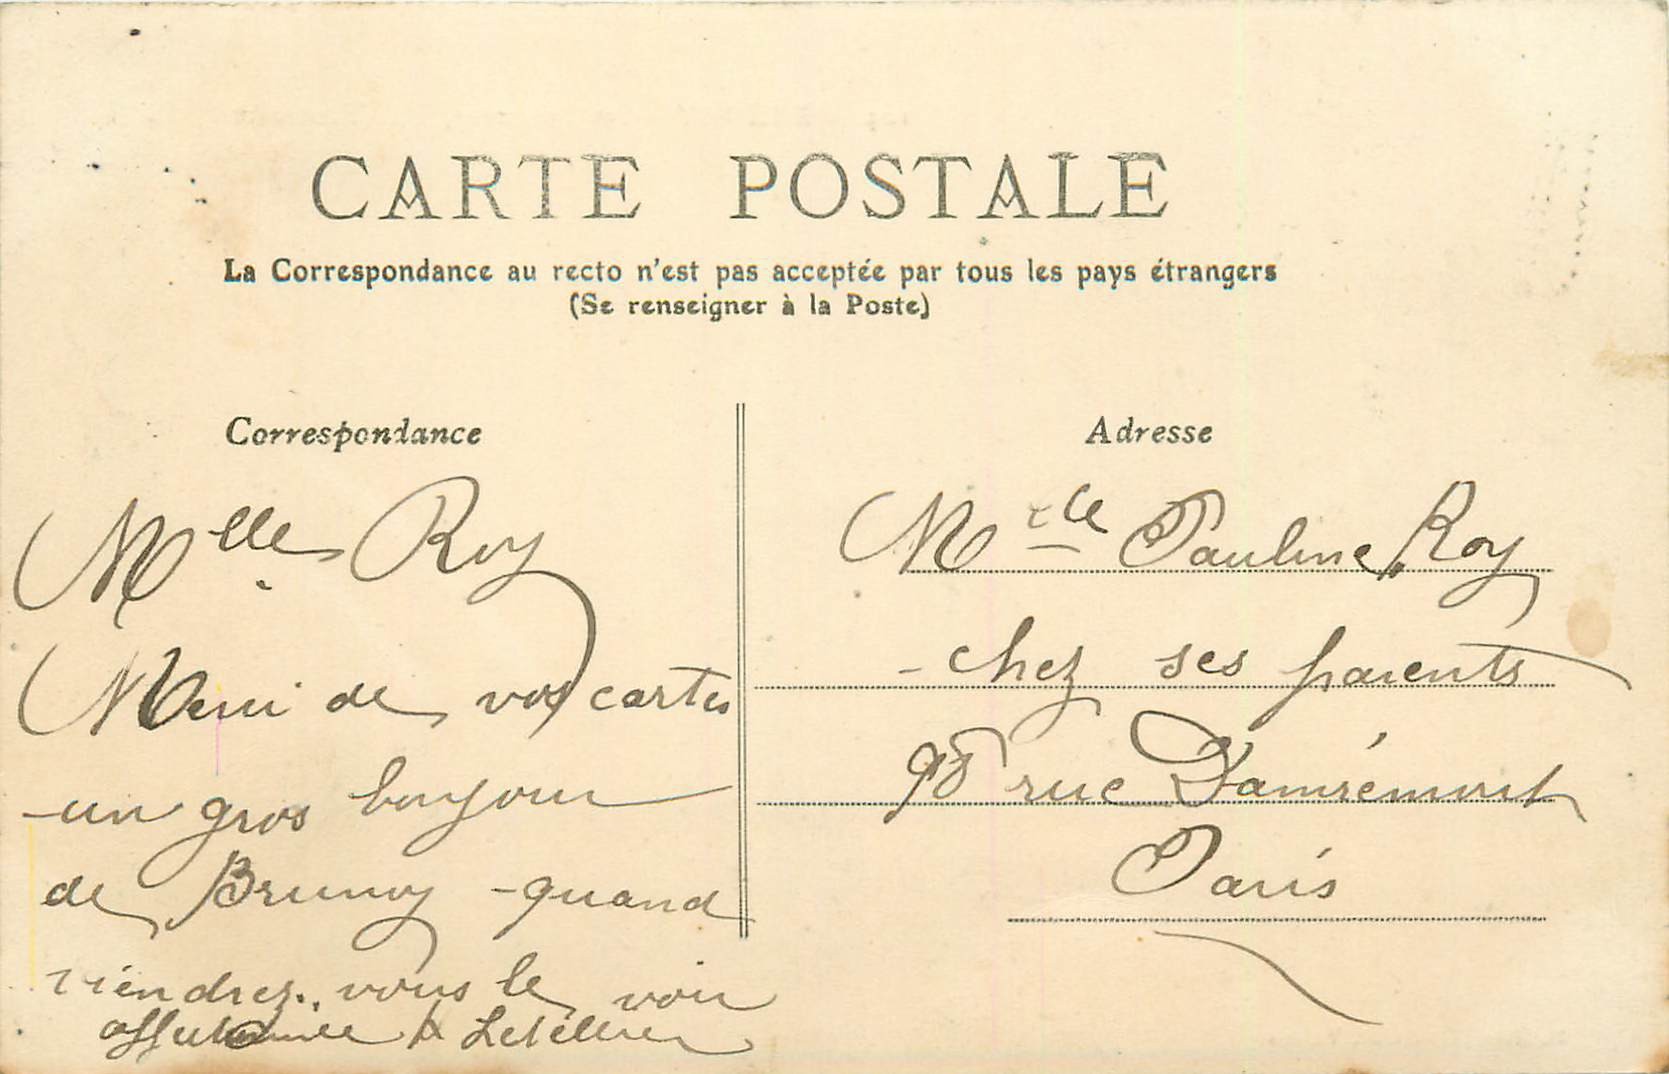 CARTE POSTALE
La Correspondance au recto n'est pas acceptée par tous les pays étrangers
(Se renseigner à la Poste)
Correspondance
Mlle Roy
Merci de vos cartes
un gros bonjour
de Brunoy - quand
viendrez-vous le voir
Letellier
Adresse
Mlle Pauline Roy
chez ses parents
98 rue Damrémont
Paris